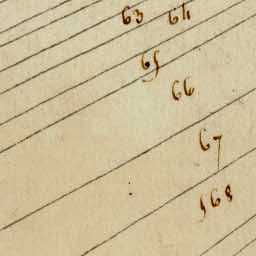 63 64
65
66
67
168